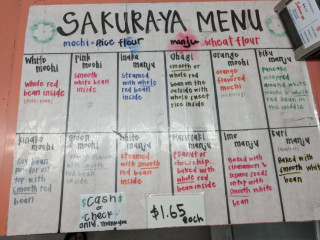 SAKURAYA MENU
mochi = Rice flour manju = wheat flour
white
mochi
whole red
bean
inside
pink
mochi
smooth
white bean
inside
inaka
manju
steamed
with whole
red bean
inside
Ohagi
smooth or
whole red
bean on the
outside with
whole sweet
rice inside
orange
mochi
orange
flavored
mochi
kiku
manju
pancake
wrapped
almond
with
red bean
in the middle
kinako
mochi
soy bean
powder on
top with
smooth red
bean
green
mochi
shiro
manju
steamed
with smooth
red bean
inside
manju
peanut or
chocochip
baked with
whole red
bean inside
Ime
manju
Baked with
cinnamon &
sesame seeds
on top with
smooth white
bean
kuri
manju
Baked with
smooth white
bean
$Cash$
or
check
only. Thank you
$1.65
each